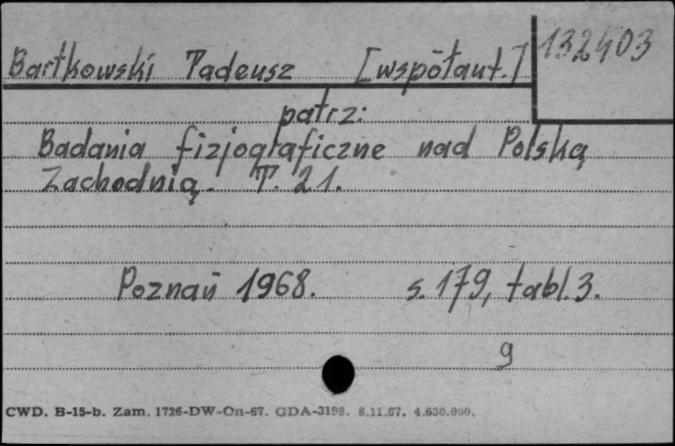 132403
Bartkowski Tadeusz [współaut.]
patrz:
Badania fizjograficzne nad Polską
Zachodnią. T. 21.
Poznań 1968. s. 179, tabl. 3.
g
CWD. B-15-b. Zam. 1726-DW-On-67. GDA-3198. 8.11.67. 4.630.000.